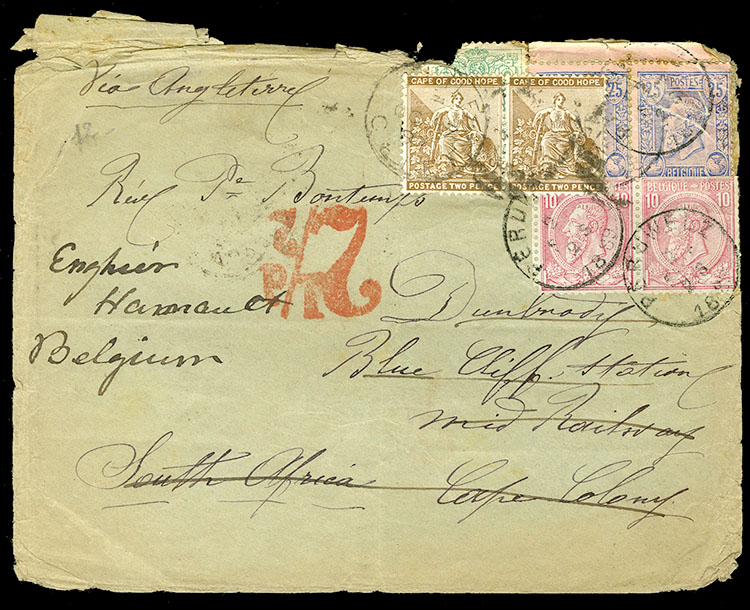 Via Angleterre
CAPE OF GOOD HOPE
POSTAGE TWO PENCE
CAPE OF GOOD HOPE
POSTAGE TWO PENCE
25
POSTES
25 25
BELGIQUE
10 10
BELGIQUE POSTES
10 10
PERUWELZ
PERUWELZ
12
Rév. Pe Bontemps
Enghien
Hainault
Belgium
Dunbrody
Blue Cliff Station
Mid Railway
South Africa Cape Colony